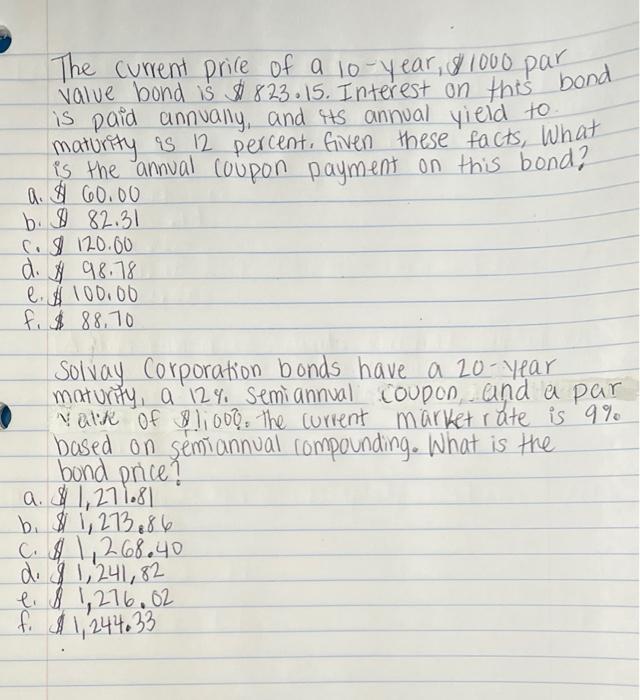 The current price of a 10-year, $1000 par
value bond is $823.15. Interest on this bond
is paid annvany, and its annual yield to
maturity is 12 percent. Given these facts, What
is the annual coupon payment on this bond?
a. $ 60.00
b. $ 82.31
c. $ 120.00
d. $ 98.78
e. $ 100.00
f. $ 88.70
Solvay Corporation bonds have a 20-year
maturity, a 12% semiannual coupon, and a par
value of $1,000. The current market rate is 9%
based on semiannual compounding. What is the
bond price?
a. $ 1,271.81
b. $ 1,273.86
c. $ 1,268.40
d. $ 1,241,82
e. $ 1,276.02
f. $ 1,244.33